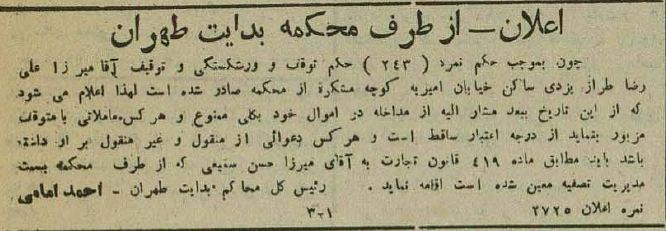 اعلان – از طرف محکمه بدایت طهران
چون بموجب حکم نمره ( ۲۴۳ ) حکم توقف و ورشکستگی و توقیف آقا میرزا علی
رضا طراز یزدی ساکن خیابان امیریه کوچه مشکوة از محکمه صادر شده است لهذا اعلام می شود
که از این تاریخ ببعد مشار الیه از مداخله در اموال خود بکلی ممنوع و هر کس معاملاتی با متوقف
مزبور بنماید از درجه اعتبار ساقط است و هر کس دعوائی از منقول و غیر منقول بر او داشته
باشد باید مطابق ماده ۴۱۹ قانون تجارت به آقای میرزا حسن که از طرف محکمه بسمت
مدیریت تصفیه معین شده است اقامه نماید . رئیس کل محاکم بدایت طهران – احمد امامی
نمره اعلان ۲۷۲۵ ۳–۱